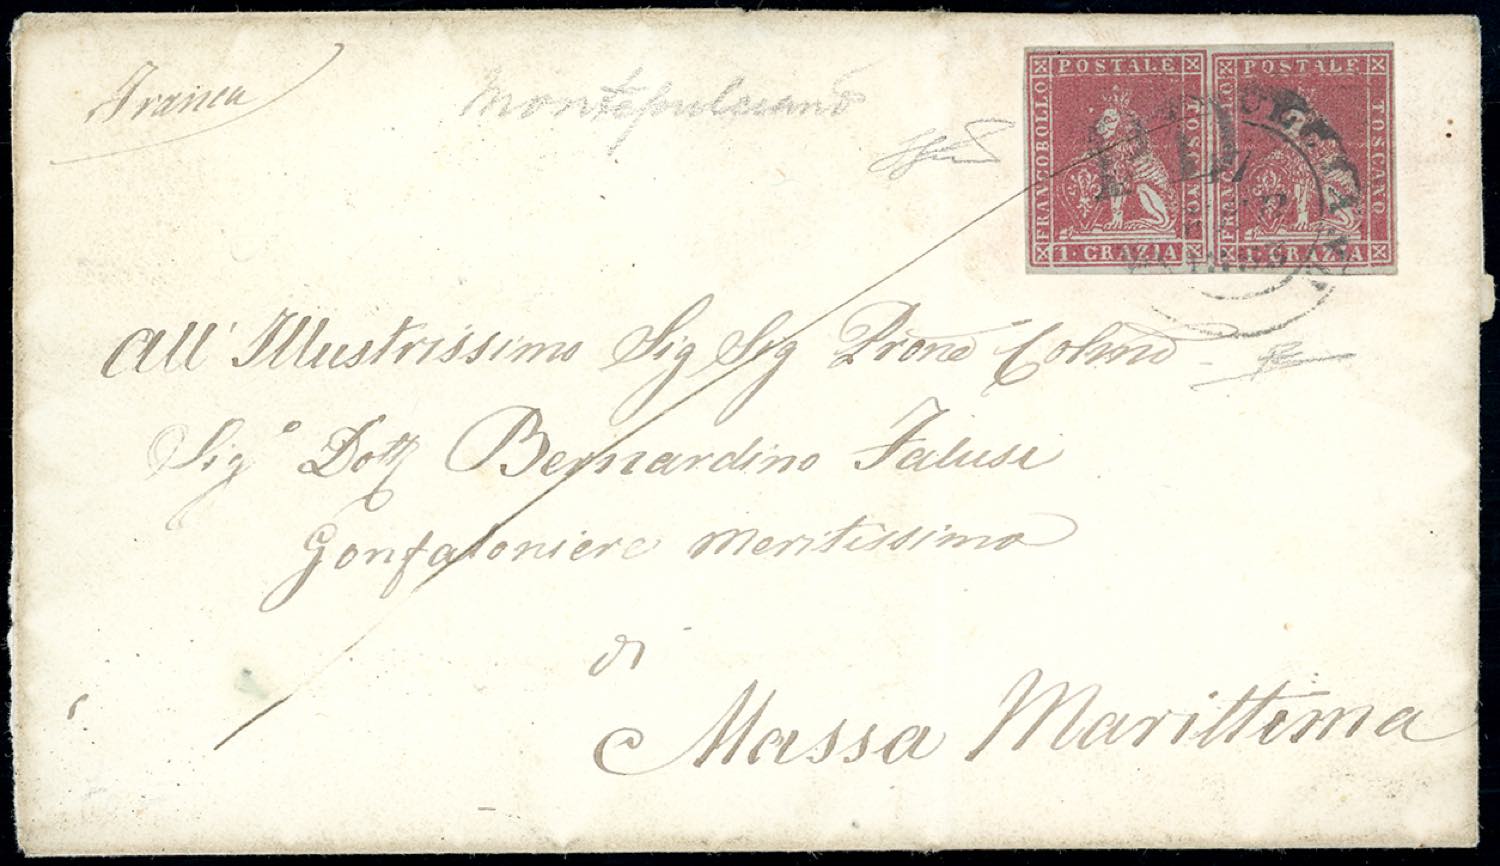 Franca
Montepulciano
POSTALE
FRANCOBOLLO
TOSCANO
1·GRAZIA
POSTALE
FRANCOBOLLO
TOSCANO
1·GRAZIA
PD
All' Illustrissimo Sig Sig Prone Colmo
Sig° Dott Bernardino Falusi
Gonfaloniere meritissimo
di
Massa Marittima